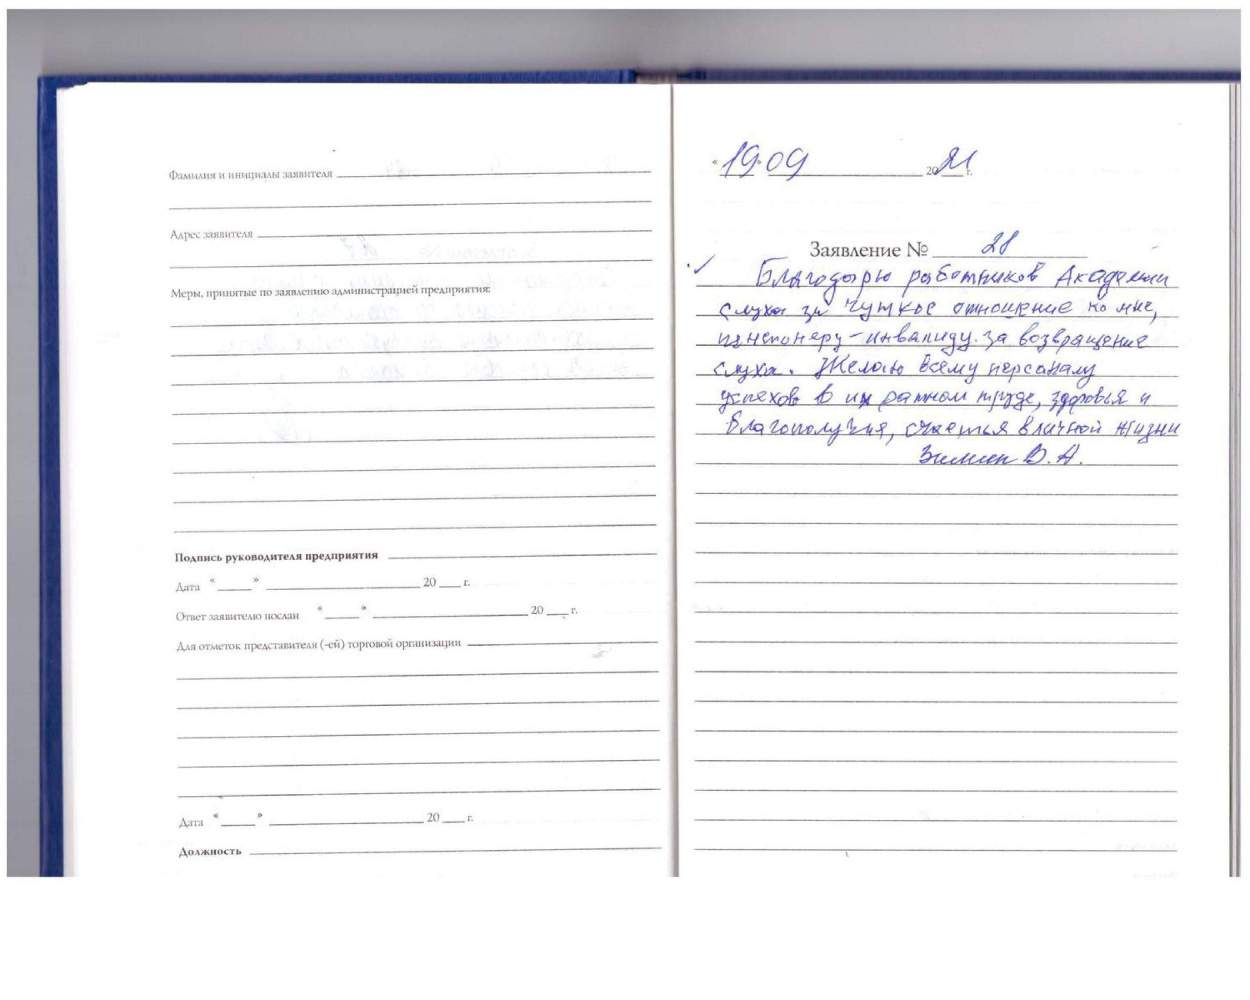 Фамилия и инициалы заявителя
Адрес заявителя
Меры, принятые по заявлению администрацией предприятия:
Подпись руководителя предприятия
Дата « » 20 г.
Ответ заявителю послан « » 20 г.
Для отметок представителя (-ей) торговой организации
Дата « » 20 г.
Должность
«19» 09 2021 г.
Заявление № 28
Благодарю работников Академии
слуха за чуткое отношение ко мне,
пенсионеру-инвалиду. за возвращение
слуха. Желаю всему персоналу
успехов в их ратном труде, здоровья и
благополучия, счастья в личной жизни
Зимин В.А.